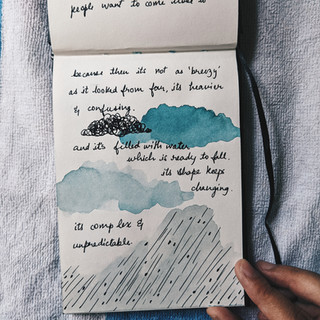 people want to come close to
because then its not as 'breezy'
as it looked from far, its heavier
& confusing.
and its filled with water
which is ready to fall.
its shape keeps
changing.
its complex &
unpredictable.